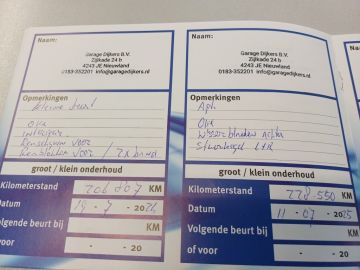 Naam:
Garage Dijkers B.V.
Zijlkade 24 b
4243 JE Nieuwland
0183-352201 info@garagedijkers.nl
Opmerkingen
Kleine beurt
Olie
voor
voor / 2x
groot / klein onderhoud
Kilometerstand KM
Datum - 7 - 20
Volgende beurt bij KM
of voor - - 20
Naam:
Garage Dijkers B.V.
Zijlkade 24 b
4243 JE Nieuwland
0183-352201 info@garagedijkers.nl
Opmerkingen
Apk
Olie
Wisserbladen achter
Stuurkogel L+R
groot / klein onderhoud
Kilometerstand 228 550 KM
Datum 11 - 07 - 2025
Volgende beurt bij KM
of voor - - 20